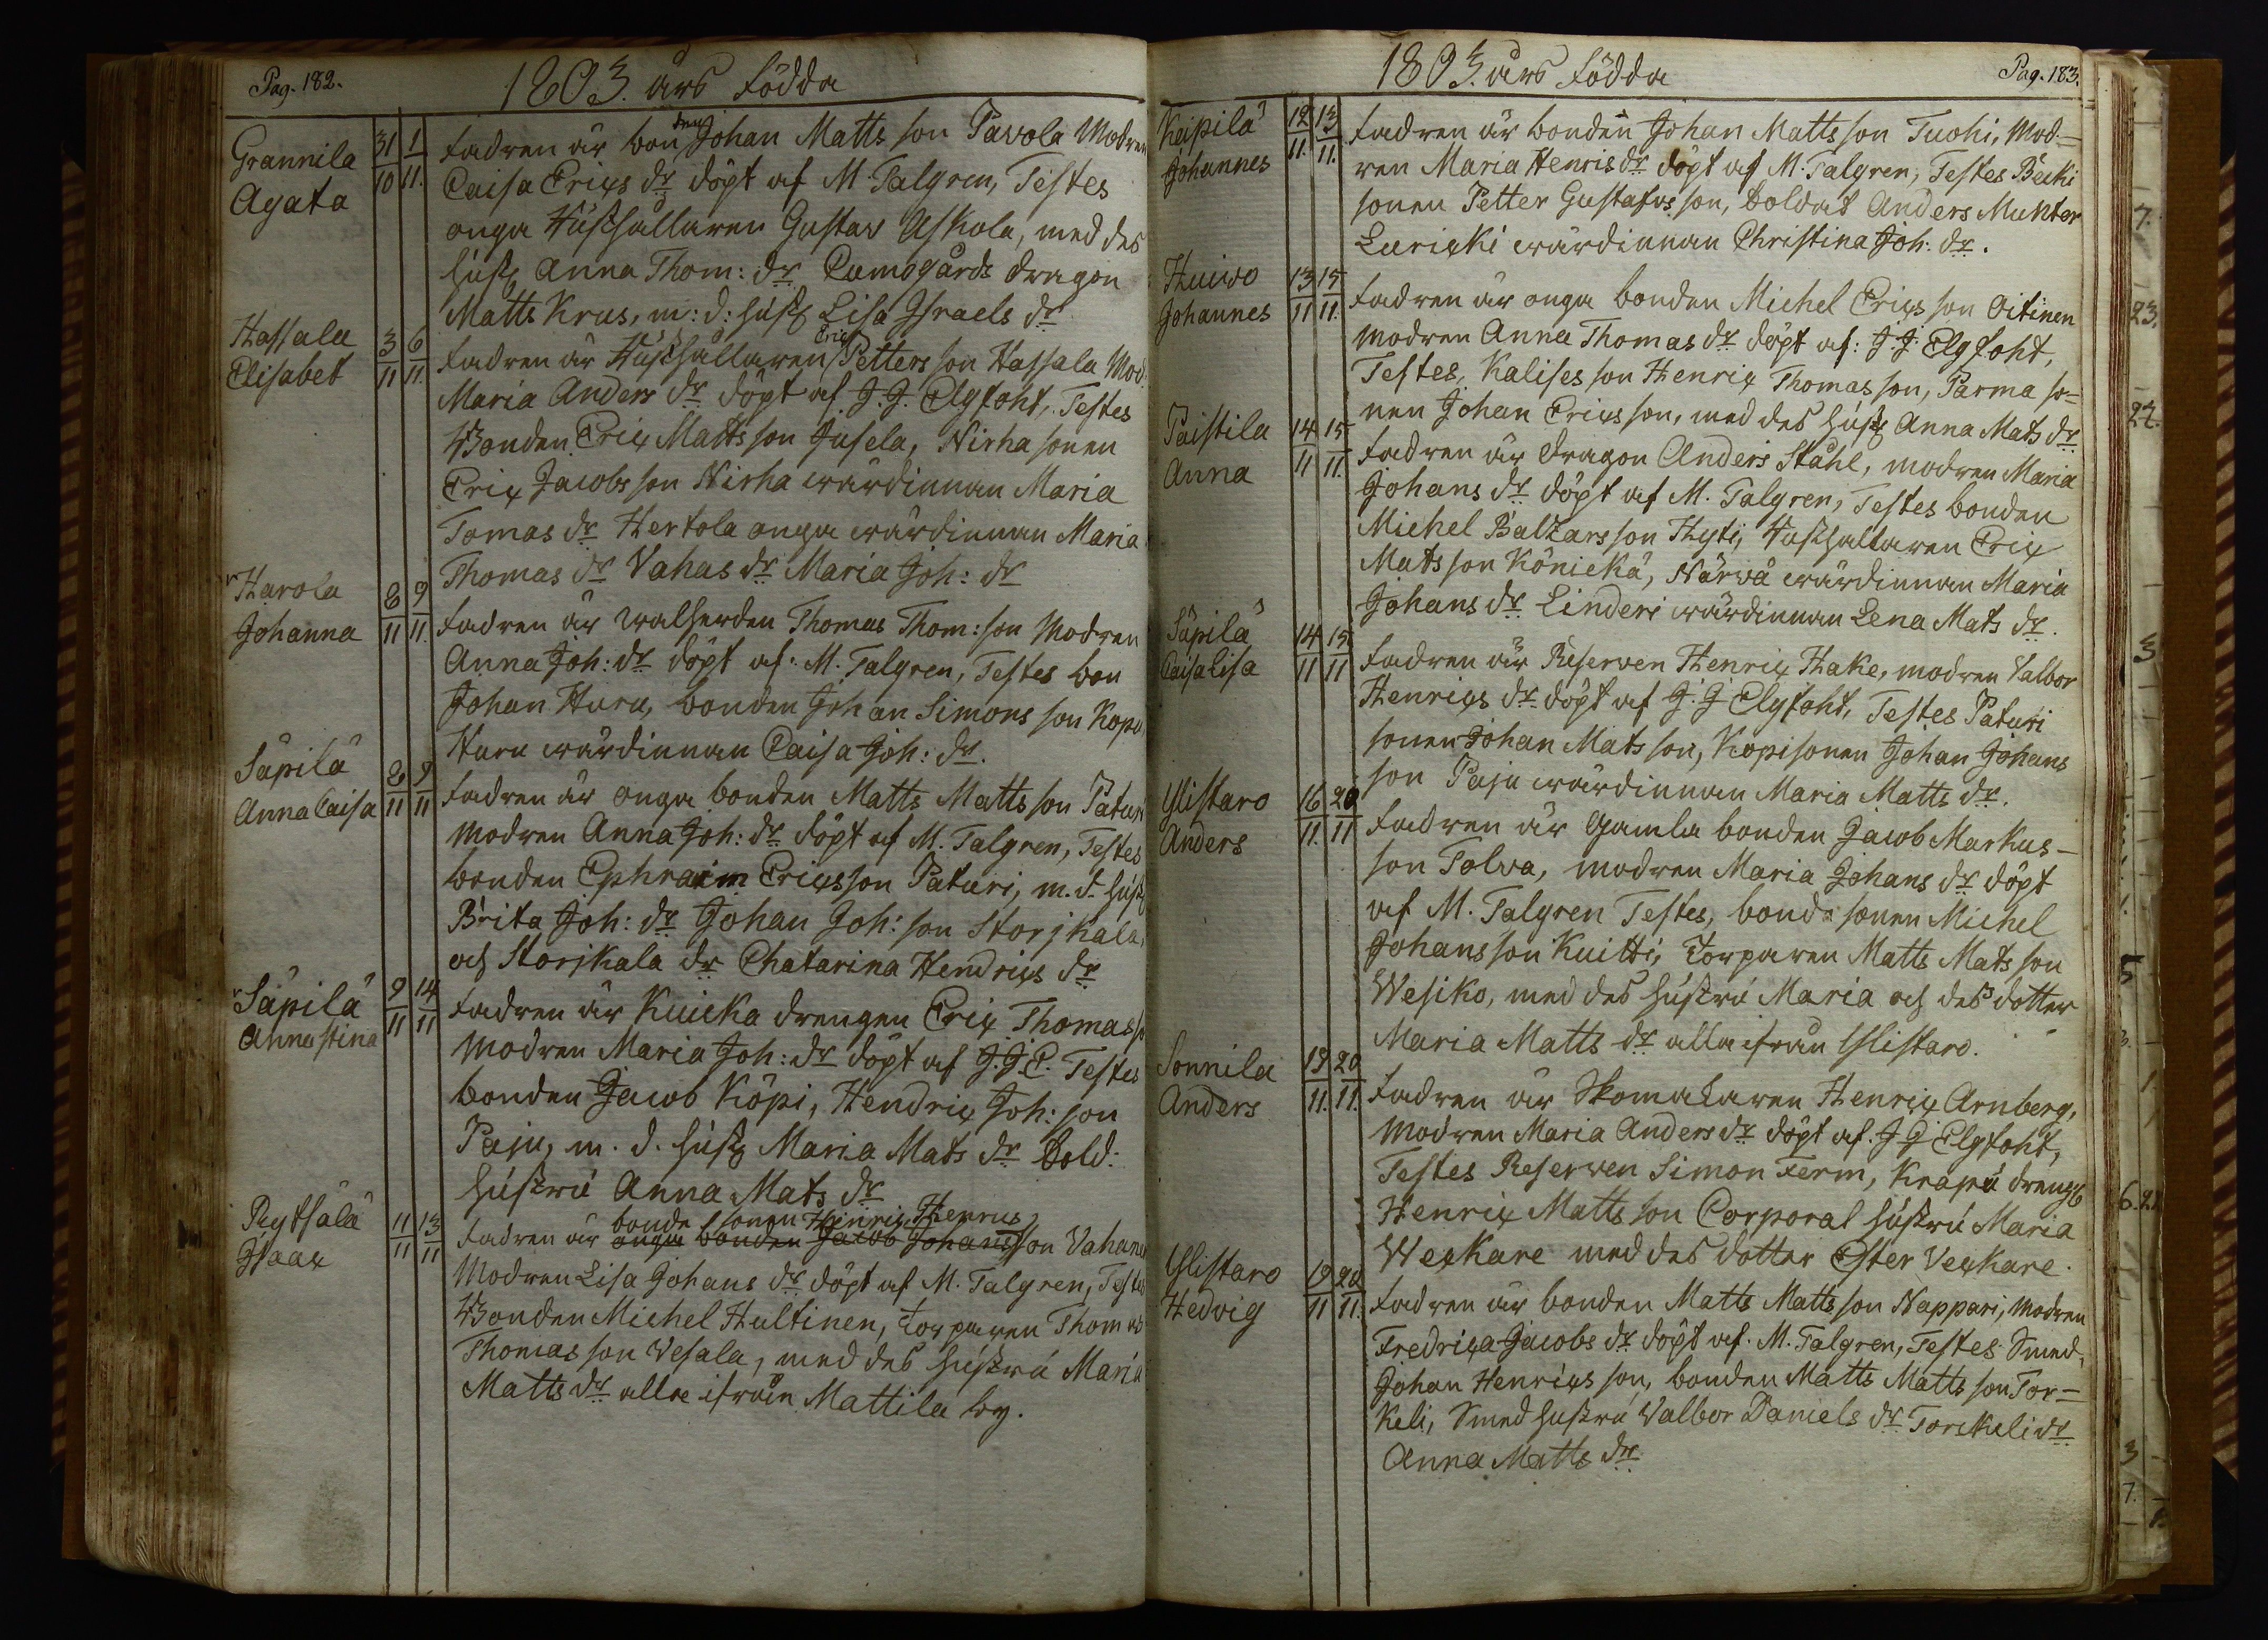 Pag. 182.
1803. års födda
Grannila 31/10 1/11. Fadren är bonden Johan Matts son Pavola Modren
Agata Caisa Erics dr döpt af M. Talgren, Testes
unga Hushållaren Gustav Uskola, med des
hust Anna Thom: dr Cumogårds dragon
Matts Krus, m: d: hust Lisa Israels dr
Hassala 3/11 6/11. Fadren är Hushållaren Eric Petters son Hassala Mod.
Elisabet Maria Anders dr döpt af J. J. Elgfoht, Testes
Bonden Eric Matts son Jusela, Nirha sonen
Eric Jacobs son Nirha wärdinnan Maria
Tomas dr Hertola unga wärdinnan Maria
Thomas dr Vahas dr Maria Joh: dr
Harola 8/11 9/11. Fadren är walherden Thomas Thom: son Modren
Johanna Anna Joh: dr döpt af M. Talgren, Testes bon
Johan Huru, bonden Johan Simons son Kopo
Huru wärdinnan Caisa Joh: dr.
Säpilä 8/11 9/11 Fadren är unga bonden Matts Matts son Paturi
Anna Caisa Modren Anna Joh: dr döpt af M. Talgren, Testes
bonden Ephraim Ericsson Paturi, m. d. hust
Brita Joh: dr Johan Joh: son Storjkala,
och Storjkala dr Chatarina Hendrics dr
Säpilä 9/11 14/11 Fadren är Kuicka drengen Eric Thomas so
Anna stina Modren Maria Joh: dr döpt af J. J. E. Testes
bonden Jacob Köpi, Hendric Joh: son
Paju, m. d. hust Maria Mats dr Sold:
hustru Anna Mats dr
Peytsälä 11/11 13/11 Fadren är bonde sonen Henric Henrics unga bonden Jacob Johans son Vahanen
Isaac Modren Lisa Johans dr döpt af M. Talgren, Testes
Bonden Michel Hultinen, Torparen Thomas
Thomas son Vesala, med des hustru Maria
Matts dr alla ifrån Mattila by.
1803. års födda
Pag. 183.
Keipilä 12/11. 13/11. Fadren är bonden Johan Matts son Tuohi, Mod-
Johannes ren Maria Henris dr döpt af M. Talgren, Testes Becki
sonen Petter Gustafs son, Soldat Anders Munter
Luricki wärdinnan Christina Joh: dr.
Huiwo 13/11 15/11. Fadren är unga bonden Michel Erics son Oitinen
Johannes Modren Anna Thomas dr döpt af: J. J. Elgfoht,
Testes, Kalises son Henric Thomas son, Parma so-
nen Johan Erics son, med des hust Anna Mats dr
Paistila 14/11 15/11. Fadren är Dragon Anders Ståhl, modren Maria
Anna Johans dr döpt af M. Talgren, Testes bonden
Michel Balzars son Thyti, Hushållaren Eric
Mats son Könickä, Närvä wärdinnan Maria
Johans dr Linderi wärdinnan Lena Mats dr.
Säpilä 14/11 15/11 Fadren är Reserven Henric Hake, modren Valbor
Caisa lisa Henrics dr döpt af J. J Elgfoht, Testes Paturi
sonen Johan Mats son, Kopisonen Johan Johans
son Paju wärdinnan Maria Matts dr.
Ylistaro 16/11. 20/11 Fadren är Gamla bonden Jacob Markus-
Anders son Tolva, modren Maria Johans dr döpt
af M. Talgren Testes, bonde sonen Michel
Johans son Kuitti, Torparen Matts Mats son
Wesiko, med des hustru Maria och des dotter
Maria Matts dr alla ifrån Ylistaro.
Sonnila 19/11. 20/11. Fadren är Skomakaren Henric Arnberg,
Anders Modren Maria Anders dr döpt af. J J Elgfoht,
Testes Reserven Simon Ferm, Krapu dreng
Henric Matts son Corporal hustru Maria
Weckare med des dotter Ester Veckare.
Ylistaro 19/11 20/11. Fadren är bonden Matts Matts son Nappari, Modren
Hedvig Fredrica Jacobs dr döpt af. M. Talgren, Testes Smed
Johan Henrics son, bonden Matts Matts son Tor-
keli, Smed hustru Valbor Daniels dr Torckeli dr
Anna Matts dr